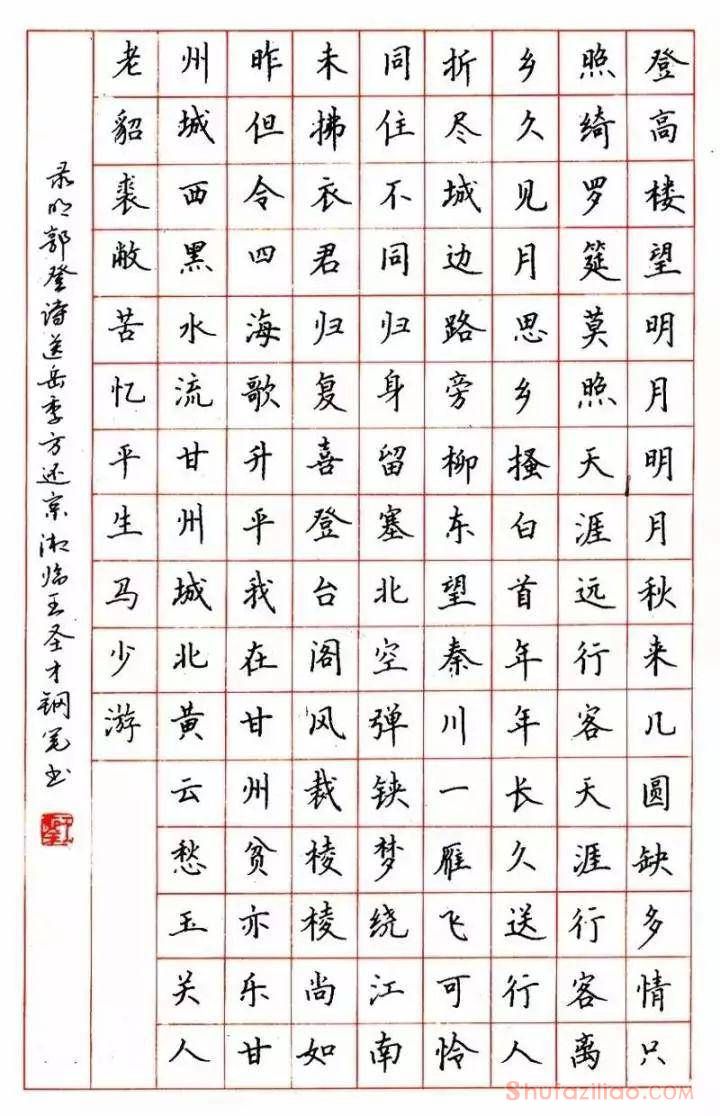 登高楼望明月明月秋来几圆缺多情只
照绮罗筵莫照天涯远行客天涯行客离
乡久见月思乡搔白首年年长久送行人
折尽城边路旁柳东望秦川一雁飞可怜
同住不同归身留塞北空弹铗梦绕江南
未拂衣君归复喜登台阁风裁棱棱尚如
昨但令四海歌升平我在甘州贫亦乐甘
州城西黑水流甘州城北黄云愁玉关人
老貂裘敝苦忆平生马少游
录明郭登诗送岳季方还京湘临王圣才钢笔书
Shufaziliao.com